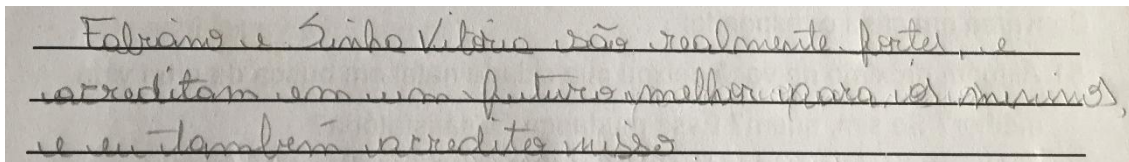 Fabiano e Sinha Vitória são realmente fortes, e
acreditam em um futuro melhor para os meninos,
e eu também acredito nisso.